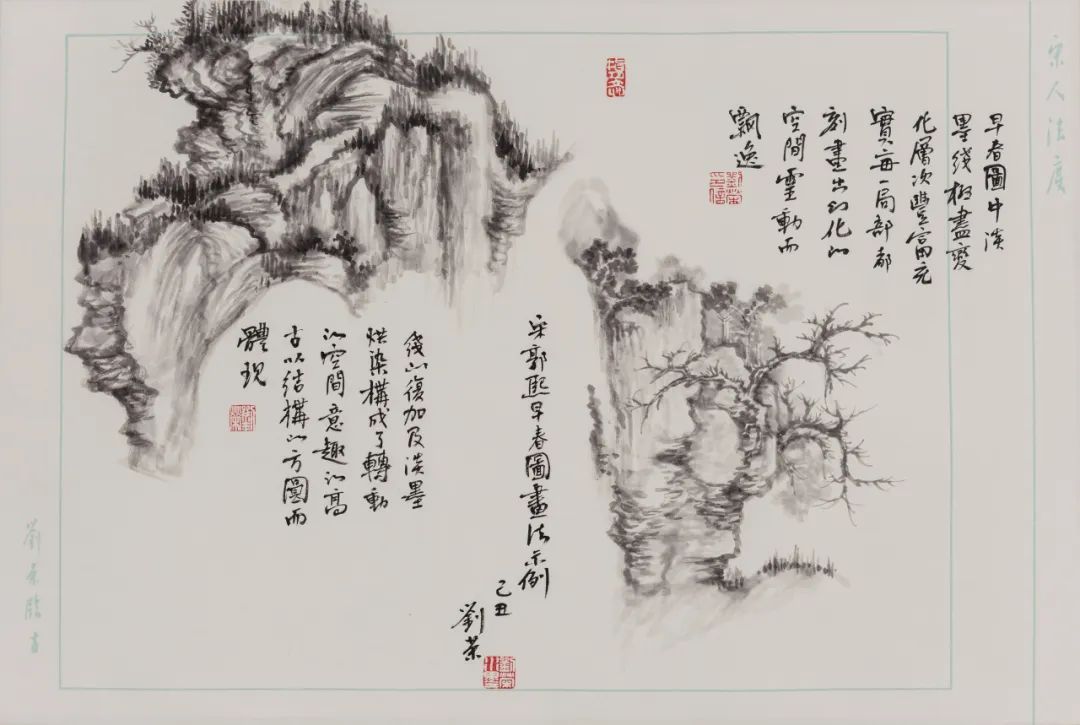 宋人法度
早春圖中淡
墨綫極盡變
化層次豐富充
實每一局部都
刻畫出幻化的
空間靈動而
飄逸
宋郭熙早春圖畫法示例
己丑
劉榮
綫的復加及淡墨
烘染構成了轉動
的空間意趣的高
古以結構的方圓而
體現
劉榮臨古